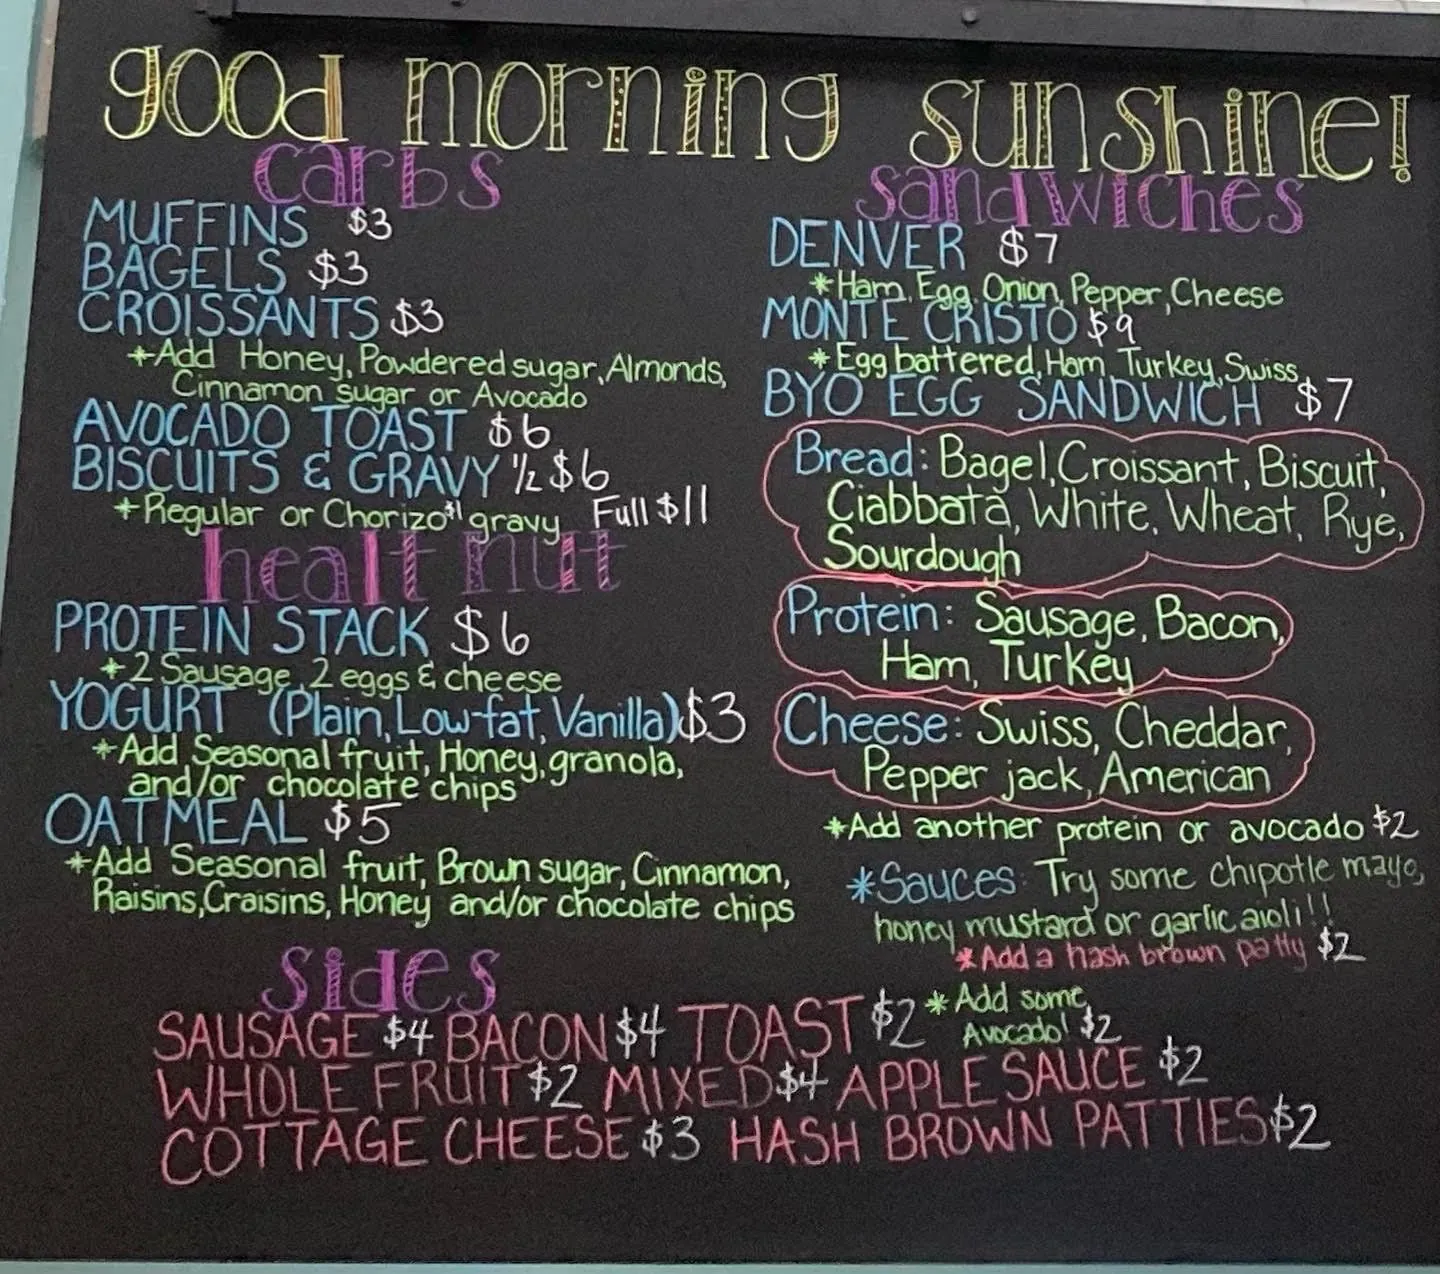 good morning sunshine!
carbs
MUFFINS $3
BAGELS $3
CROISSANTS $3
*Add Honey, Powdered sugar, Almonds,
Cinnamon sugar or Avocado
AVOCADO TOAST $6
BISCUITS & GRAVY ½ $6
*Regular or Chorizo $1 gravy Full $11
healt nut
PROTEIN STACK $6
*2 Sausage, 2 eggs & cheese
YOGURT (Plain, Low-fat, Vanilla) $3
*Add Seasonal fruit, Honey, granola,
and/or chocolate chips
OATMEAL $5
*Add Seasonal fruit, Brown sugar, Cinnamon,
Raisins, Craisins, Honey and/or chocolate chips
sandwiches
DENVER $7
*Ham, Egg, Onion, Pepper, Cheese
MONTE CRISTO $9
*Egg battered, Ham, Turkey, Swiss
BYO EGG SANDWICH $7
Bread: Bagel, Croissant, Biscuit,
Ciabbata, White, Wheat, Rye,
Sourdough
Protein: Sausage, Bacon,
Ham, Turkey
Cheese: Swiss, Cheddar,
Pepper jack, American
*Add another protein or avocado $2
*Sauces: Try some chipotle mayo,
honey mustard or garlic aioli!!
*Add a hash brown patty $2
sides
SAUSAGE $4 BACON $4 TOAST $2 *Add some
Avocado! $2
WHOLE FRUIT $2 MIXED $4 APPLE SAUCE $2
COTTAGE CHEESE $3 HASH BROWN PATTIES $2